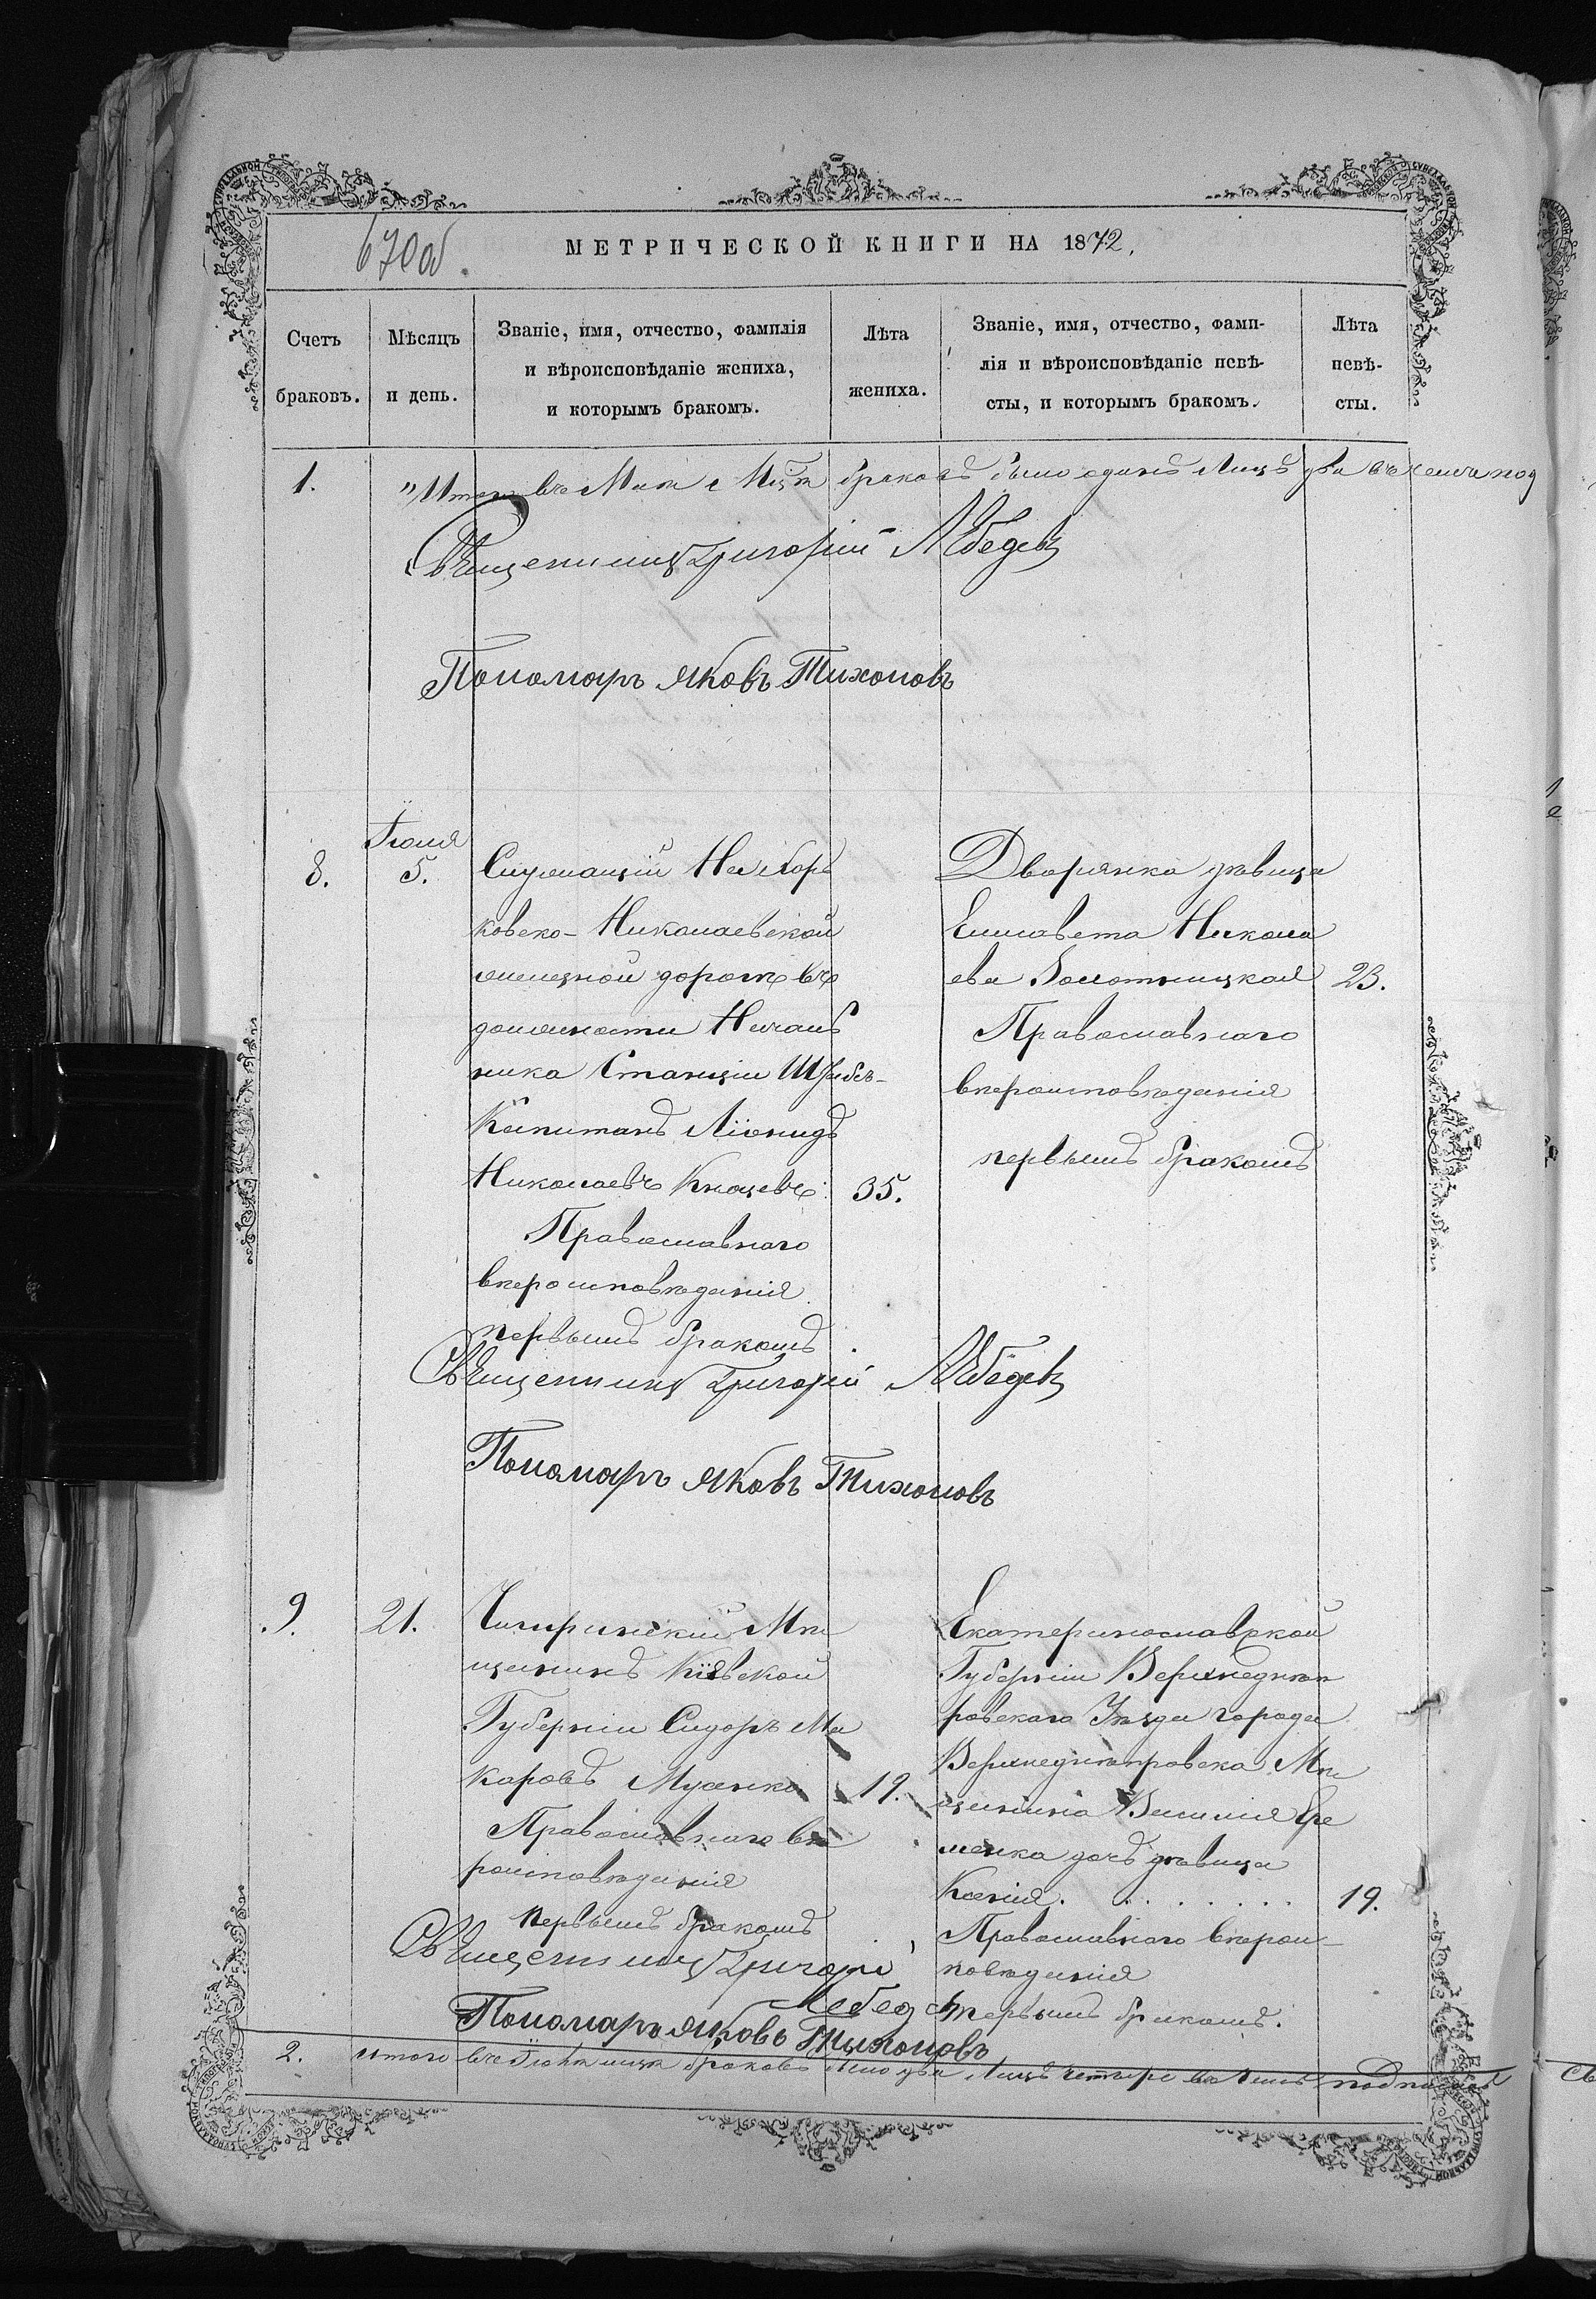 670об.
МЕТРИЧЕСКОЙ КНИГИ НА 1872.
Счетъ браковъ.
Мѣсяцъ и день.
Званіе, имя, отчество, фамилія
и вѣроисповѣданіе жениха,
и которымъ бракомъ.
Лѣта жениха.
Званіе, имя, отчество, фами-
лія и вѣроисповѣданіе невѣ-
сты, и которымъ бракомъ.
Лѣта невѣ-
сты.
1. Итого въ Маѣ Мцѣ браковъ было одинъ Лицъ два въ чемъ под
Священникъ Григорій Лебедевъ
Пономарь Яковъ Тихоновъ
8.
Іюля
5.
Служащій На Харь
ковско-Николаевской
железной дорогѣ въ
должности Началь
ника Станціи
Капитанъ Ліонидъ
Николаевъ
Православнаго
вѣроисповѣданія
первымъ бракомъ
35.
Дворянка дѣвица
Елисавета Никола
ева Золотницкая
Православнаго
вѣроисповѣданія
первымъ бракомъ
23.
Священникъ Григорій Лебедевъ
Пономарь Яковъ Тихоновъ
9.
21.
Чигиринскій Мѣ
щанинъ Кіевской
Губерніи Сидоръ Ма
каровъ
Православнаго вѣ
роисповѣданія
первымъ бракомъ
19.
Екатеринославской
Губерніи Верхнеднѣп
ровскаго Уѣзда города
Верхнеднѣпровска Мѣ
щанина Василія Ере
менка дочь дѣвица
Ксенія.
Православнаго вѣрои-
повѣданія
первымъ бракомъ.
19.
Священникъ Григорій
Лебедевъ
Пономарь Яковъ Тихоновъ
2. итого въ мцѣ браковъ было два Лицъ четыре въ чемъ подписал